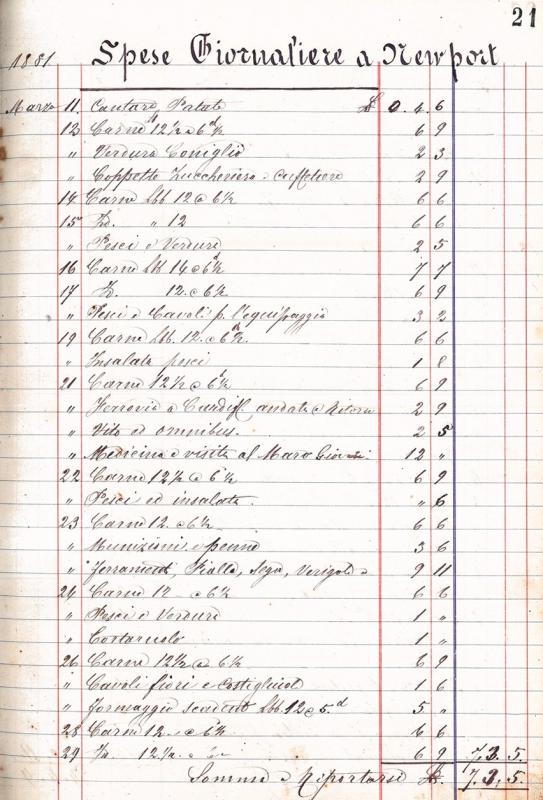 21
1881 Spese Giornaliere a Newport
Marzo 11. Cantaro, Patate £ 0. 4. 6
12 Carne 12½ a 6½ᵈ 6 9
" Verdura Coniglio 2 3
" Coppette Zuccheriera 2 9
14 Carne Lbb 12 a 6½ 6 6
15 Id. " 12 6 6
" Pesci e Verdure 2 5
16 Carne Lbb 14 a 6½ᵈ 7 7
17 Id. 12. a 6½ 6 9
" Pesci e Cavoli p. l'equipaggio 3 2
19 Carne Lbb. 12. a 6½ᵈ 6 6
" Insalata pesci 1 8
21 Carne 12½ a 6½ 6 9
" Ferrovia a Cardiff andata e Ritorno 2 9
" Vito ed omnibus. 2 5
" Medicina e visite al Maro 12 "
22 Carne 12½ a 6½ 6 9
" Pesci ed insalata. " 6
23 Carne 12. a 6½ 6 6
" Munizioni e penne 3 6
" Pialla, Sega, 9 11
24 Carne 12 a 6½ 6 6
" Pesci e Verdure 1 "
" 1 "
26 Carne 12½ a 6½ 6 9
" Cavoli fiori e 1 6
" Formaggio Lbb. 12 a 5.ᵈ 5 "
28 Carne 12. a 6½ 6 6
29 Id. 12½ a 6 9 7, 3. 5.
Somma a Riportarsi £. 7, 3, 5.